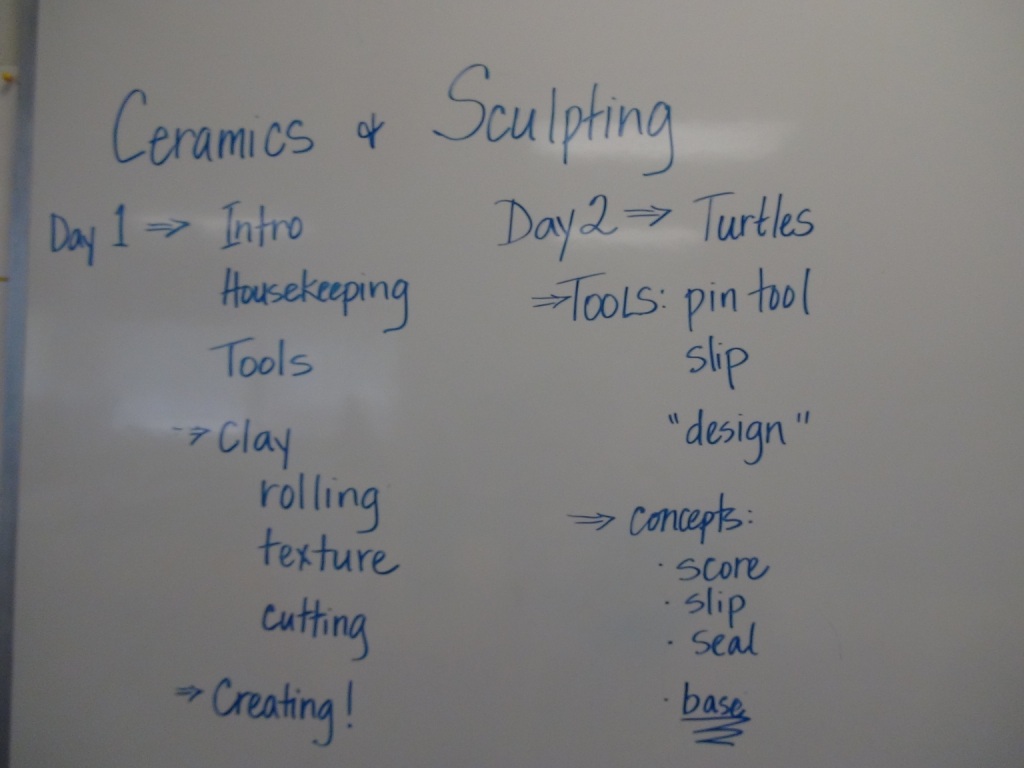 Ceramics & Sculpting
Day 1 ⇒ Intro
Housekeeping
Tools
⇒ Clay
rolling
texture
cutting
⇒ Creating!
Day 2 ⇒ Turtles
⇒ TOOLS: pin tool
slip
"design"
⇒ concepts:
· score
· slip
· seal
· base